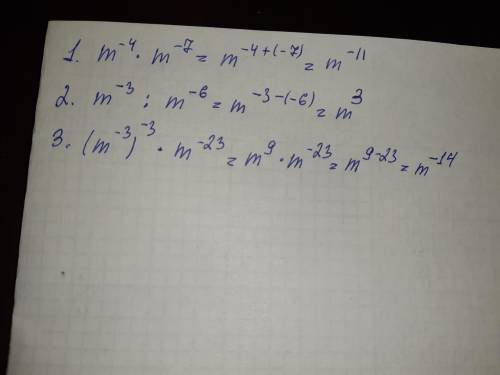 1. m⁻⁴ · m⁻⁷ = m⁻⁴⁺⁽⁻⁷⁾ = m⁻¹¹
2. m⁻³ : m⁻⁶ = m⁻³⁻⁽⁻⁶⁾ = m³
3. (m⁻³)⁻³ · m⁻²³ = m⁹ · m⁻²³ = m⁹⁻²³ = m⁻¹⁴